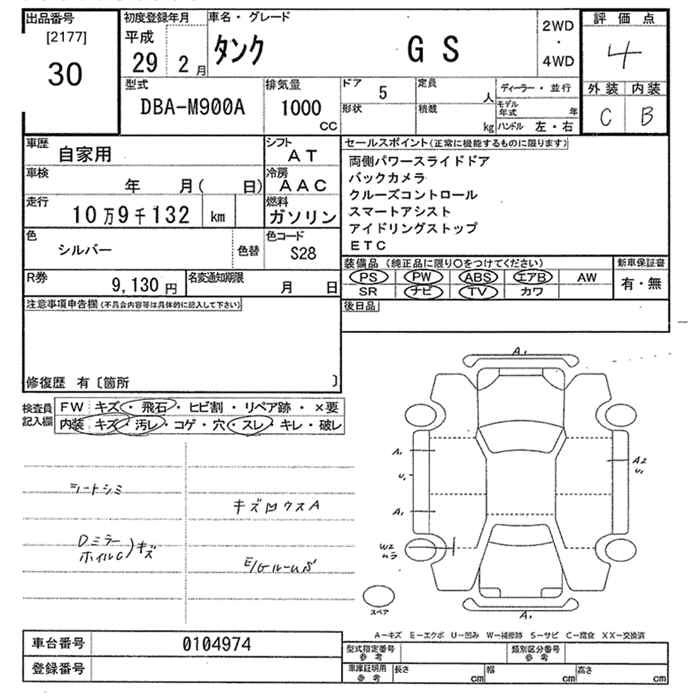 出品番号 初度登録年月 車名・グレード 2WD・4WD 評価点
[2177] 平成
30 29 2月 タンク GS 4
外装 内装
C B
型式 排気量 ドア 定員 ディーラー・並行
DBA-M900A 1000 CC 5 人 モデル年式 年
形状 積載 kg ハンドル 左・右
車歴 自家用 シフト AT
車検 年 月( 日) 冷房 AAC
走行 10万9千132 km 燃料 ガソリン
色 シルバー 色替 色コード S28
R券 9,130円 名変通知期限 月 日
セールスポイント(正常に機能するものに限ります)
両側パワースライドドア
バックカメラ
クルーズコントロール
スマートアシスト
アイドリングストップ
ETC
装備品(純正品に限り○をつけてください) 新車保証書
PS PW ABS エアB AW 有・無
SR ナビ TV カワ
後日品
注意事項申告欄(不具合内容等は具体的に記入して下さい)
修復歴 有〔箇所 〕
検査員記入欄 FW キズ・飛石・ヒビ割・リペア跡・×要
内装 キズ・汚レ・コゲ・穴・スレ・キレ・破レ
シートシミ
キズ凹ウスA
Dミラー
ホイルC)キズ
E/Gルーム
A1
A1
U1
A1
A2
U1
W2
ムラ
A1
スペア
A-キズ E-エクボ U-凹み W-補修跡 S-サビ C-腐食 XX-交換済
車台番号 0104974
登録番号
型式指定番号 参考 類別区分番号 参考
車庫証明用 参考 長さ cm 幅 cm 高さ cm